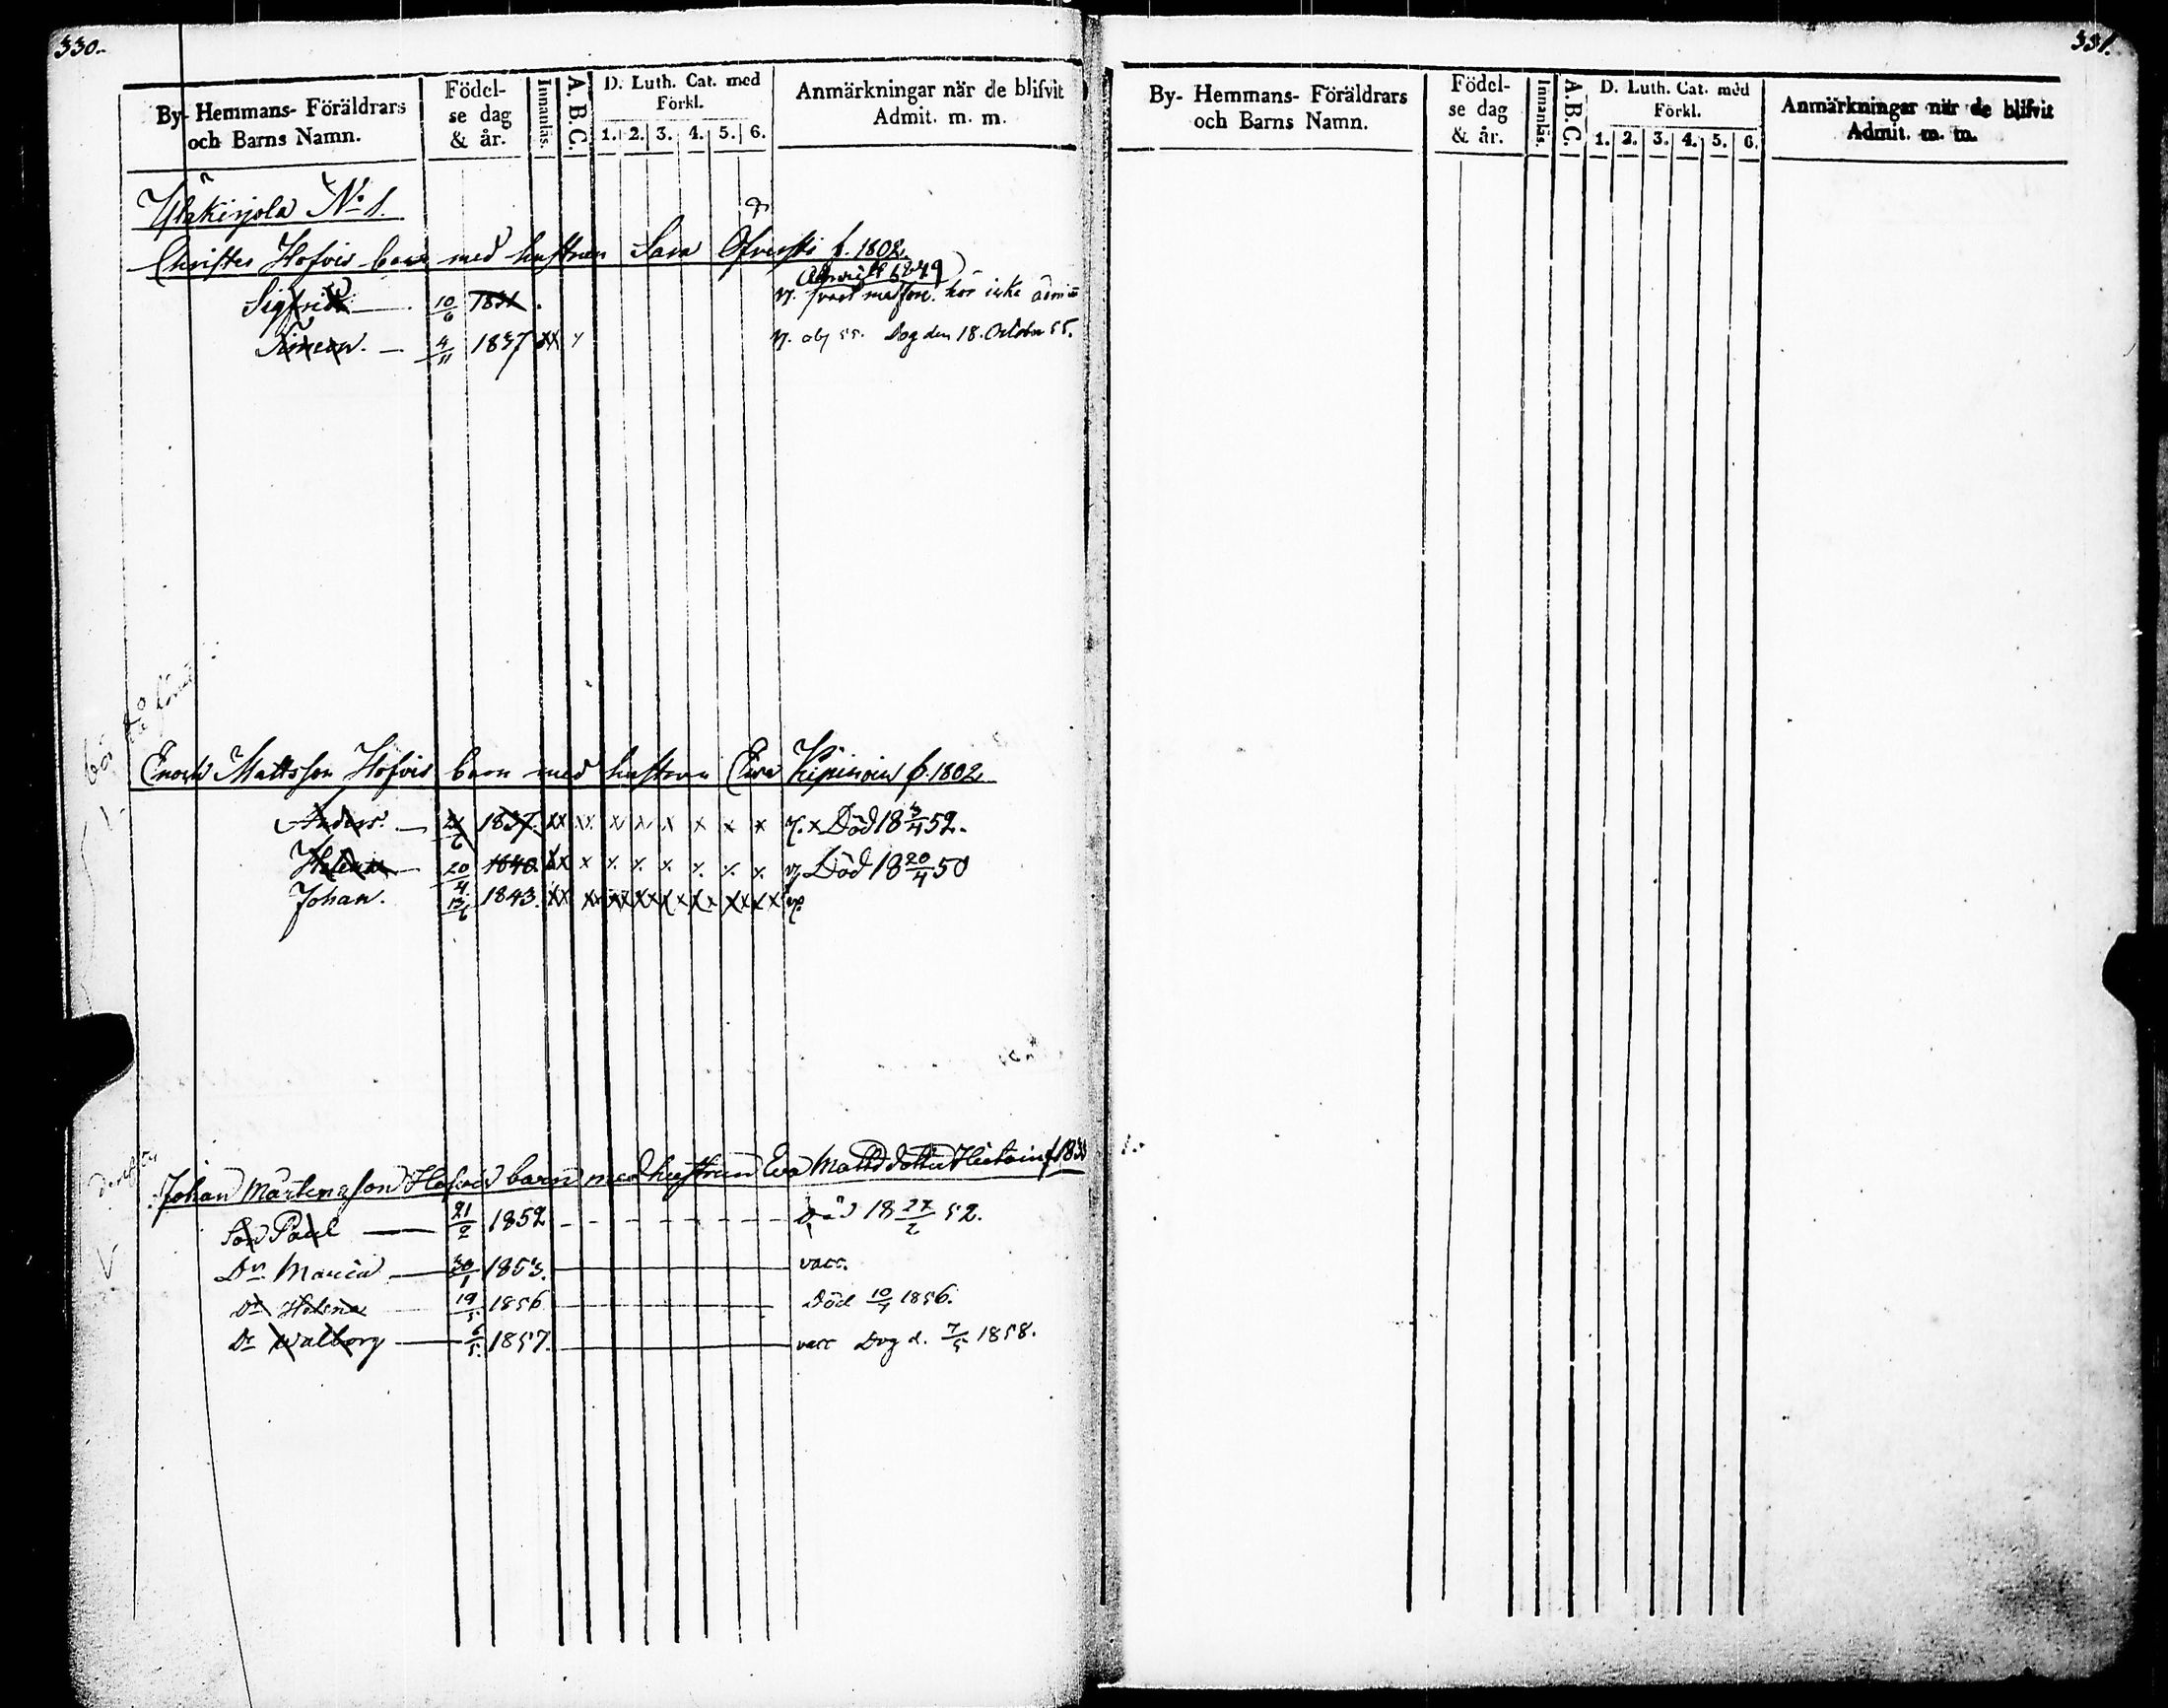 330.
By- Hemmans- Föräldrars och Barns Namn.
Födel- se dag & år.
Innanläs.
A.B.C.
D. Luth. Cat. med Förkl.
1. 2. 3. 4. 5. 6.
Anmärkningar när de blifvit Admit. m. m.
No 1.
Christer Hofvis barn med hustrun Sara f. 1802.
Sigfrid 10/6 1831. Admitt 1849
Simeon. 4/11 1837 xx Dog den 18. October 55.
Enoch Mattsson Hofvis barn med hustrun Ewa f. 1802
Anders. 1837. xx xx x x x x x x x Död 18 3/4 52.
Helena 20/4 1840 xx x x x x x x x v. Död 18 20/4 50
Johan. 13/6 1843. xx xx xx xx xx xx xx xx
Johan Mårtensson Hofvis barn med hustrun Eva Mattsdotter
Son Paul 21/2 1852 Död 18 27/2 52.
Dr. Maria 30/1 1853. vacc.
Dr Helena 19/5 1856 Död 10/7 1856.
Dr Walborg 6/5 1857. vacc Dog d. 7/5 1858.
331.
By- Hemmans- Föräldrars och Barns Namn.
Födel- se dag & år.
Innanläs.
A.B.C.
D. Luth. Cat. med Förkl.
1. 2. 3. 4. 5. 6.
Anmärkningar när de blifvit Admit. m. m.